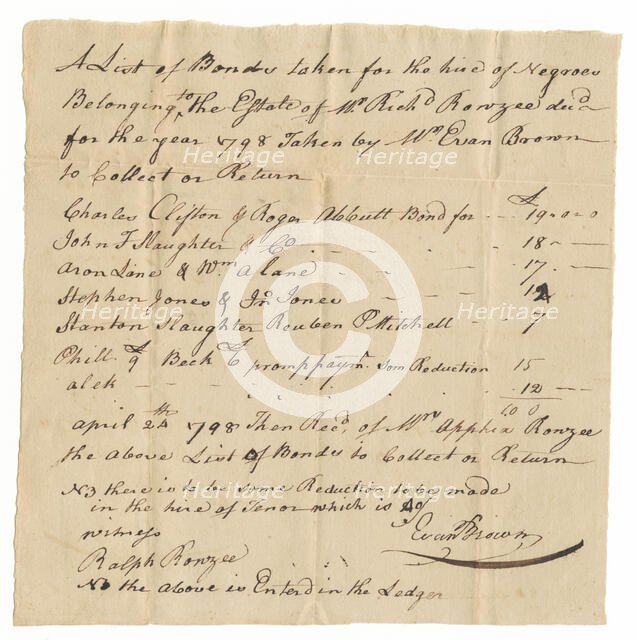 A List of Bonds taken for the hire of Negroes
Belonging to the Estate of Mr Richd Rowzee decd
for the year 1798 Taken by Mr Evan Brown
to Collect or Return
£
Charles Clifton & Roger Abbutt Bond for - - 19 - 0 - 0
John F Slaughter & Co - - - - 18 - -
Aron Lane & Wm A Lane - - - - 17 - -
Stephen Jones & Jno Jones - - - - 12
Stanton Slaughter Reuben P Mitchell - - 7
Phill £9 Beck £6 prompt paymt som Reduction 15
alek - - - - - - - 12 - -
April 24th 1798 Then Recd of Mrs Apphia Rowzee
the above List of Bonds to Collect or Return
NB there is to be some Reduction to be made
in the hire of Tenor which is
witness Evan Brown
Ralph Rowzee
NB the above is Enterd in the Ledger
Heritage Heritage Heritage
Heritage Heritage Heritage
Heritage Heritage Heritage